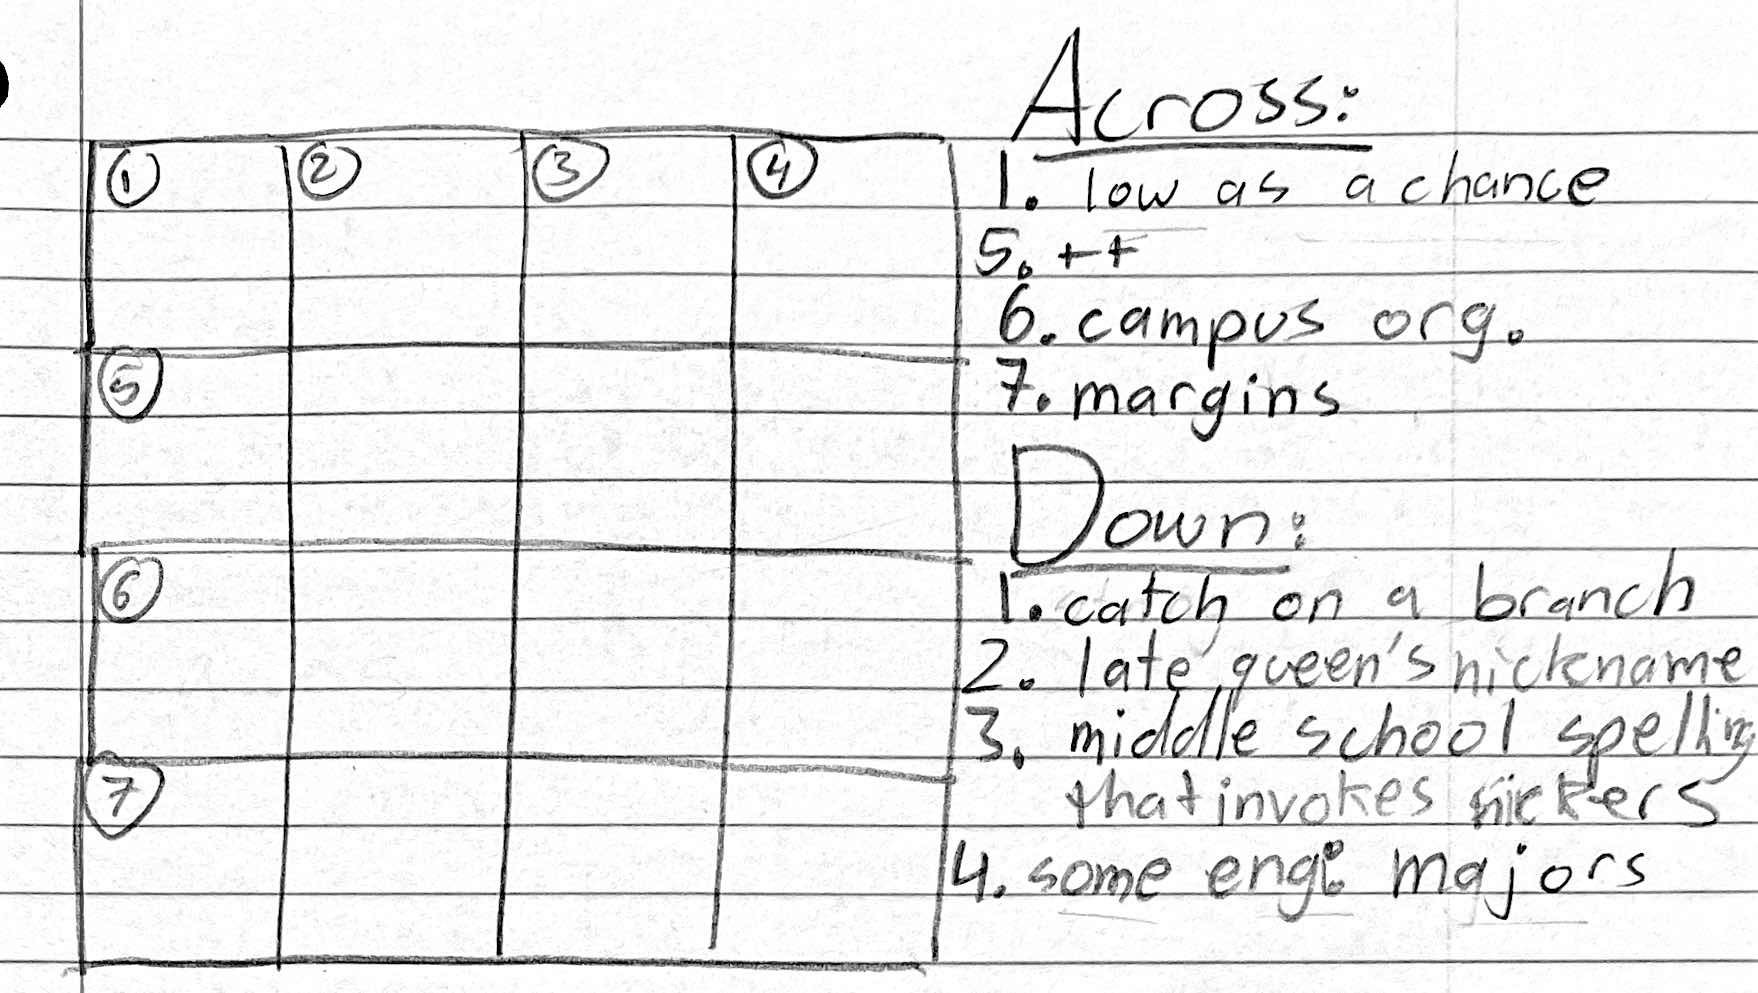 ① ② ③ ④
⑤
⑥
⑦
Across:
1. low as a chance
5. ++
6. campus org.
7. margins
Down:
1. catch on a branch
2. late queen's nickname
3. middle school spelling
that invokes nickers
4. some engi majors